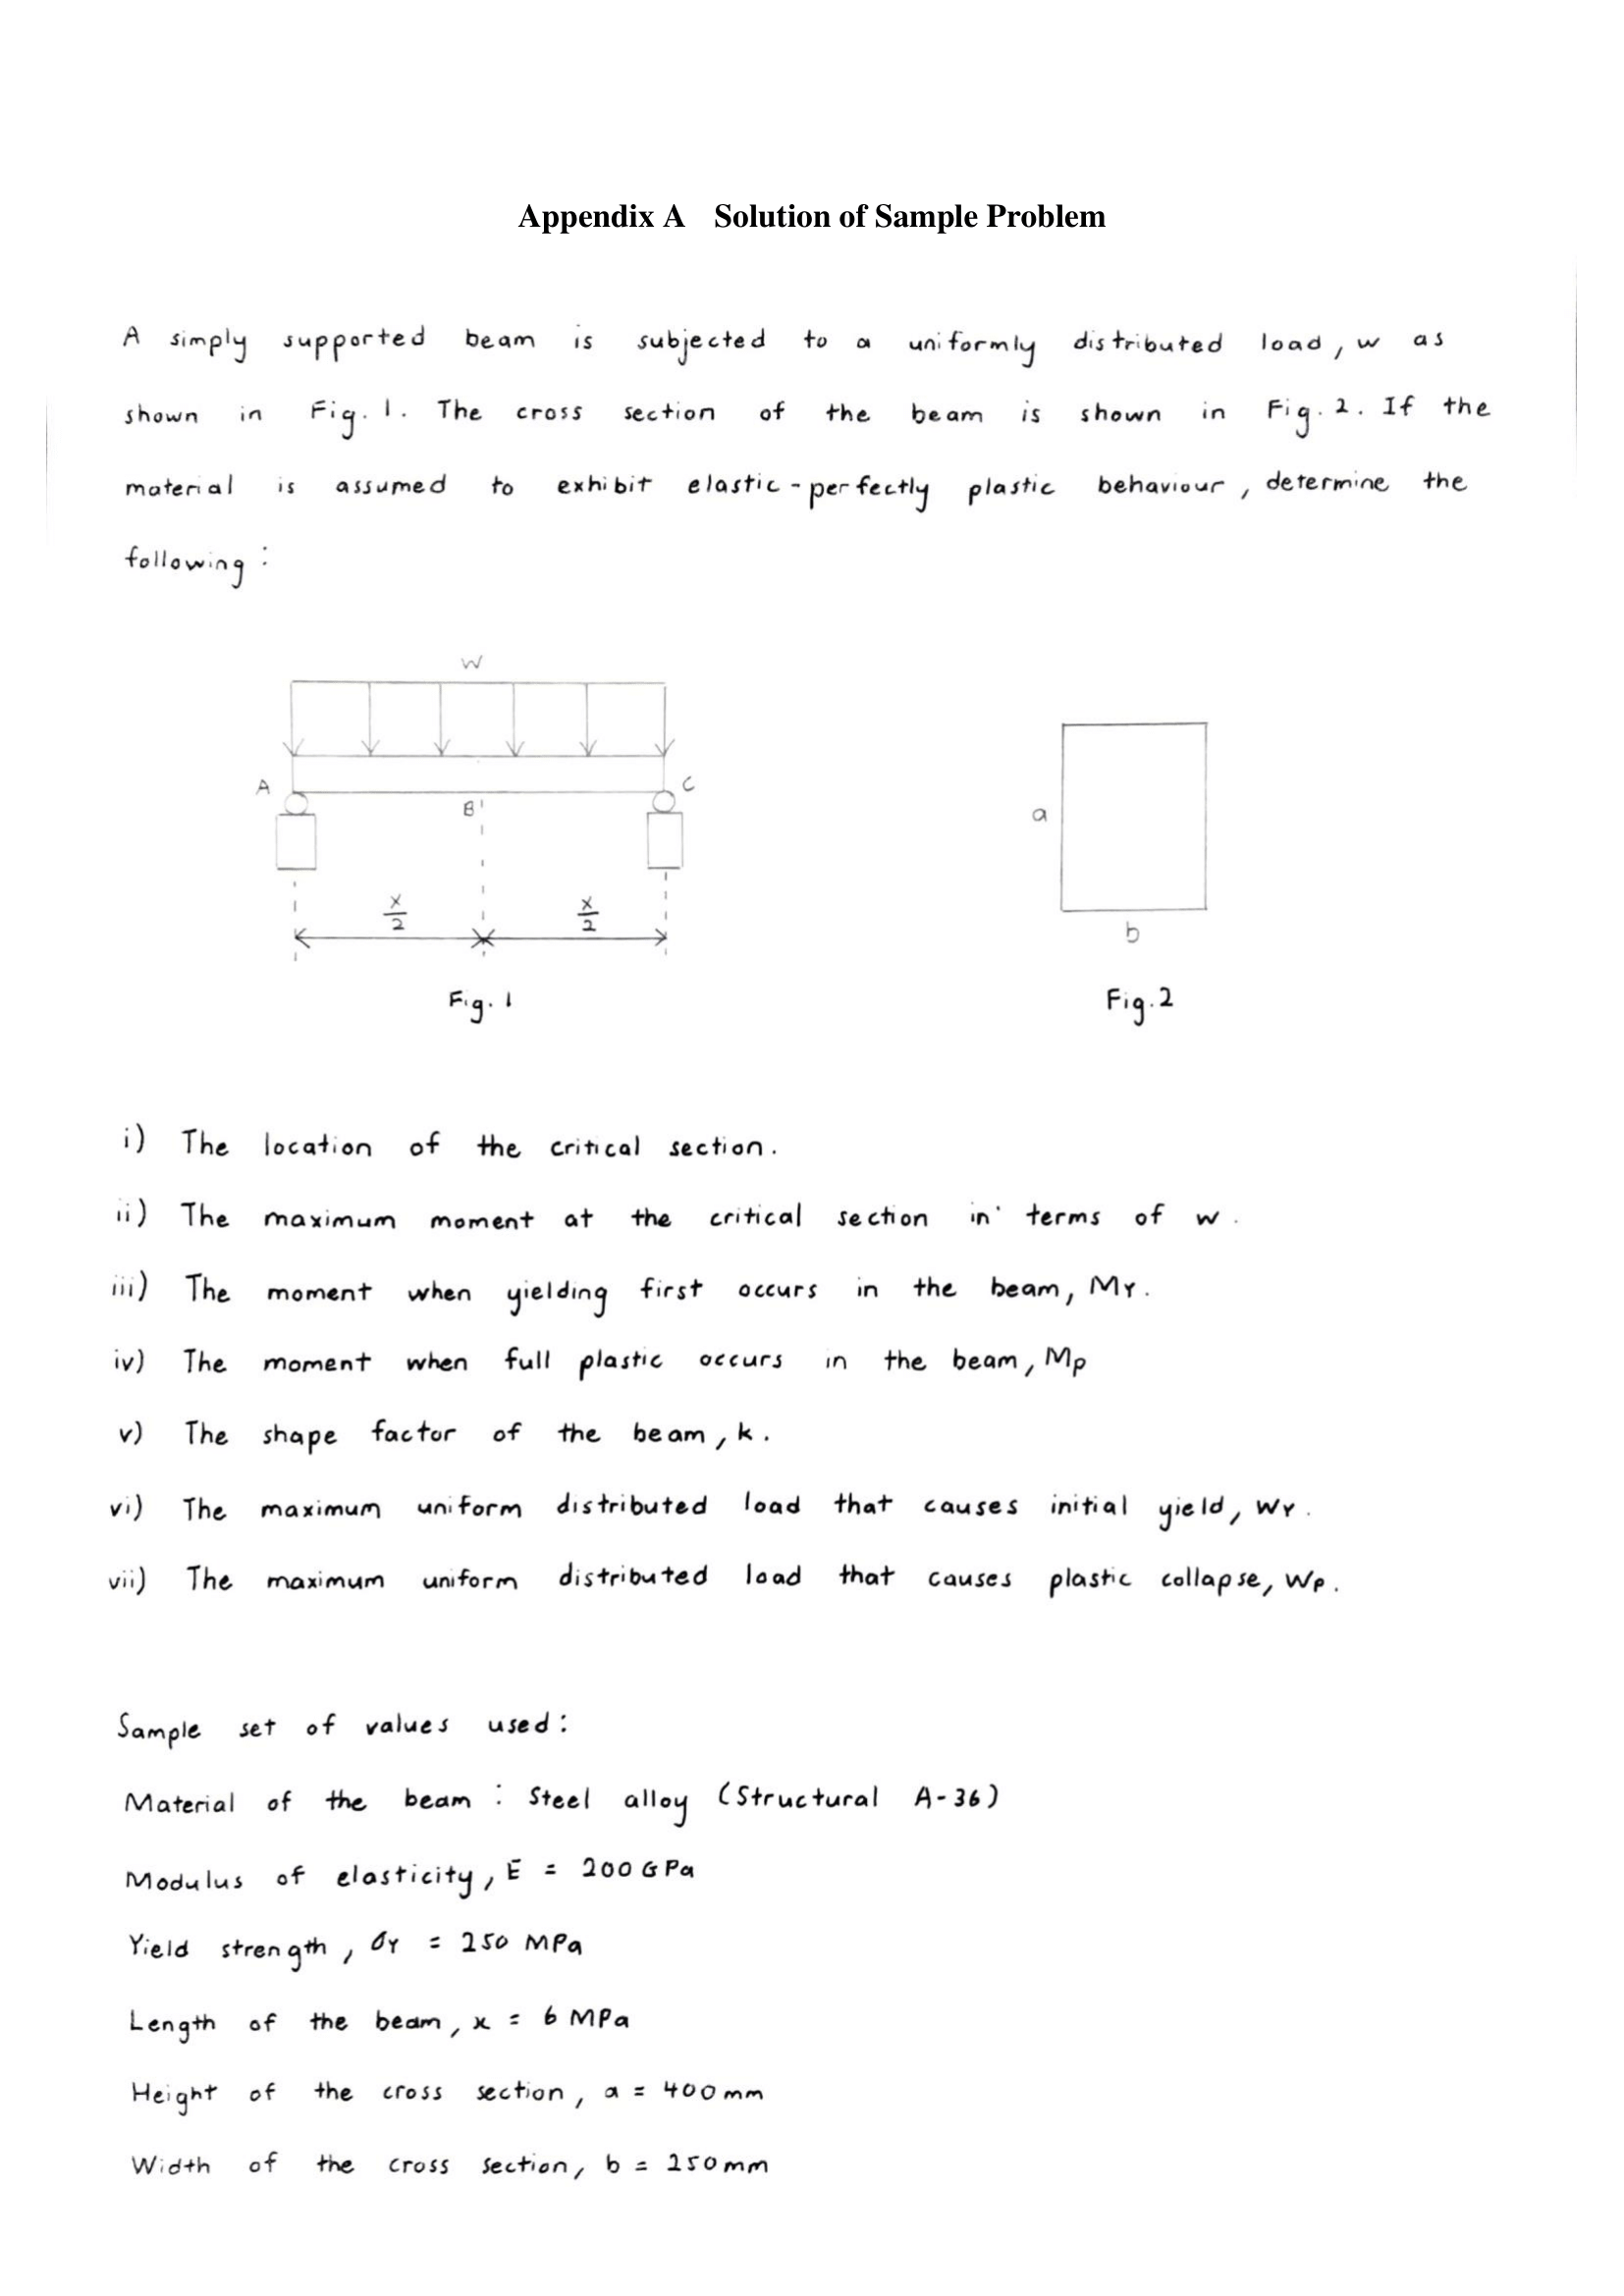 Appendix A Solution of Sample Problem
A simply supported beam is subjected to a uniformly distributed load, w as
shown in Fig. 1. The cross section of the beam is shown in Fig. 2. If the
material is assumed to exhibit elastic-perfectly plastic behaviour, determine the
following:
W
A
C
B
a
x/2
x/2
b
Fig. 1
Fig. 2
i) The location of the critical section.
ii) The maximum moment at the critical section in terms of w.
iii) The moment when yielding first occurs in the beam, MY.
iv) The moment when full plastic occurs in the beam, Mp
v) The shape factor of the beam, k.
vi) The maximum uniform distributed load that causes initial yield, WY.
vii) The maximum uniform distributed load that causes plastic collapse, WP.
Sample set of values used:
Material of the beam : Steel alloy (Structural A-36)
Modulus of elasticity, E = 200 GPa
Yield strength, σY = 250 MPa
Length of the beam, x = 6 MPa
Height of the cross section, a = 400 mm
Width of the cross section, b = 250 mm